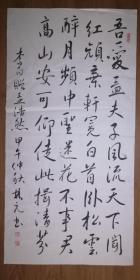 吾愛孟夫子風流天下聞
紅顏棄軒冕白首卧松雲
醉月頻中聖迷花不事君
高山安可仰徒此揖清芬
李白贈孟浩然甲午仲秋書